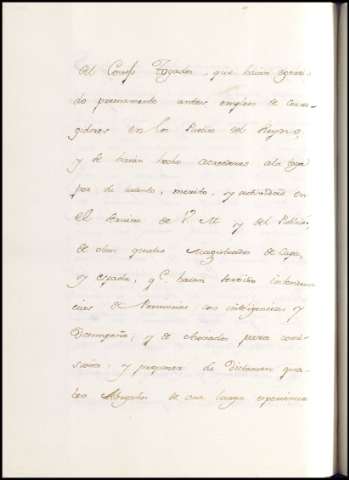 del Consejo Togados, que haian egerci-
do previamente antes empleos de Corre-
gidores en los Pueblos del Reyno,
y se haian hecho acreedores a la toga
por su merito, y actividad en
el servicio de V. M. y del Publico,
de otros quatro Magistrados de Capa,
y espada, q.e haian servido intenden-
cias de Provincias con inteligencia y
Desempeño; y de Abogados para
y preparar su Dictamen qua-
tro Abogados de una larga experiencia